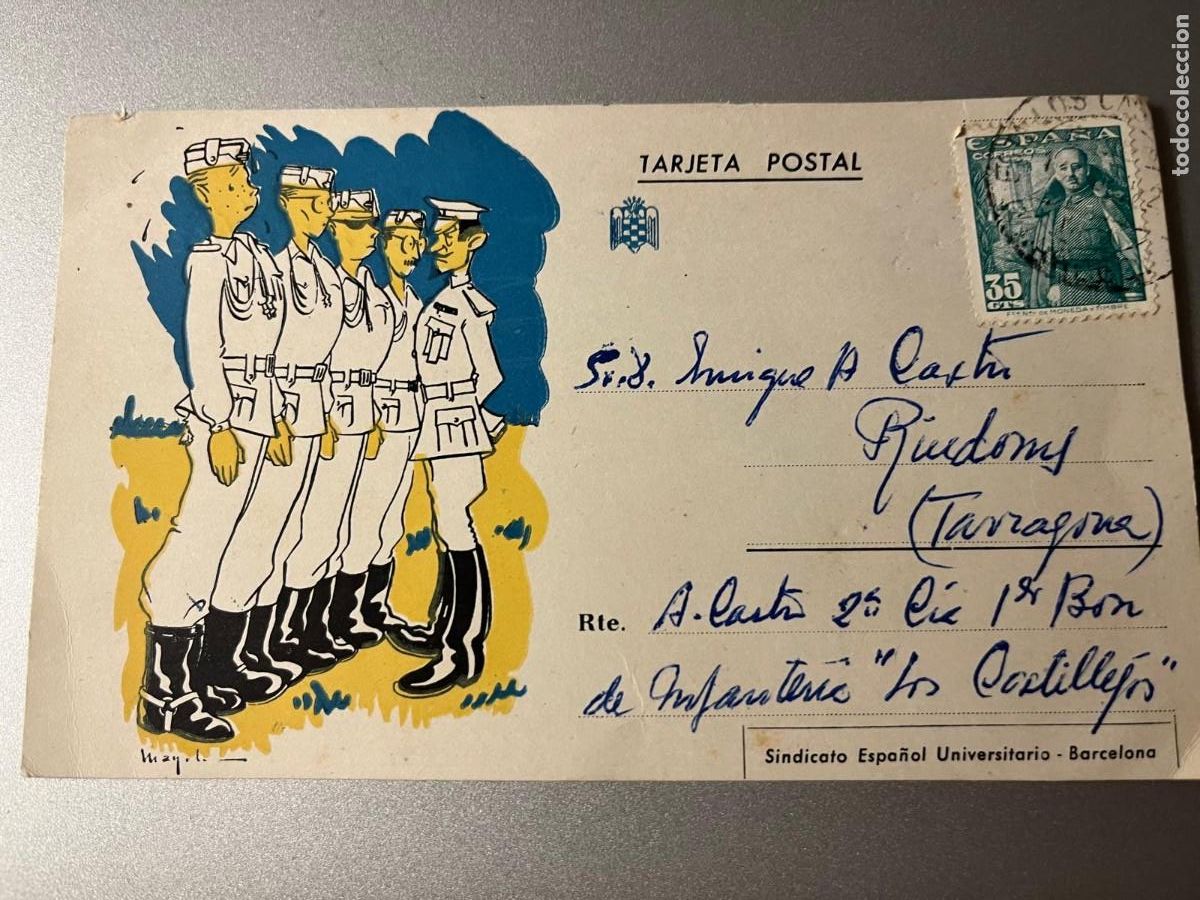 TARJETA POSTAL
ESPAÑA
CORREOS
35
CTS
Sr. D. Enrique A Castro
Riudoms
(Tarragona)
Rte. A. Castro 2ª Cia 1er Bon
de Infantería "Los Castillejos"
Sindicato Español Universitario - Barcelona
todocoleccion